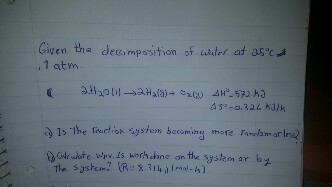 Given the decomposition of water at 25°C
, 1 atm
2H₂O(l) → 2H₂(g) + O₂(g) ΔH°=572 kJ
ΔS°=0.326 kJ/k
a) Is the reaction system becoming more random or less?
b) Calculate wpv. Is work done on the system or by
the system? (R= 8.314 J/mol-k)